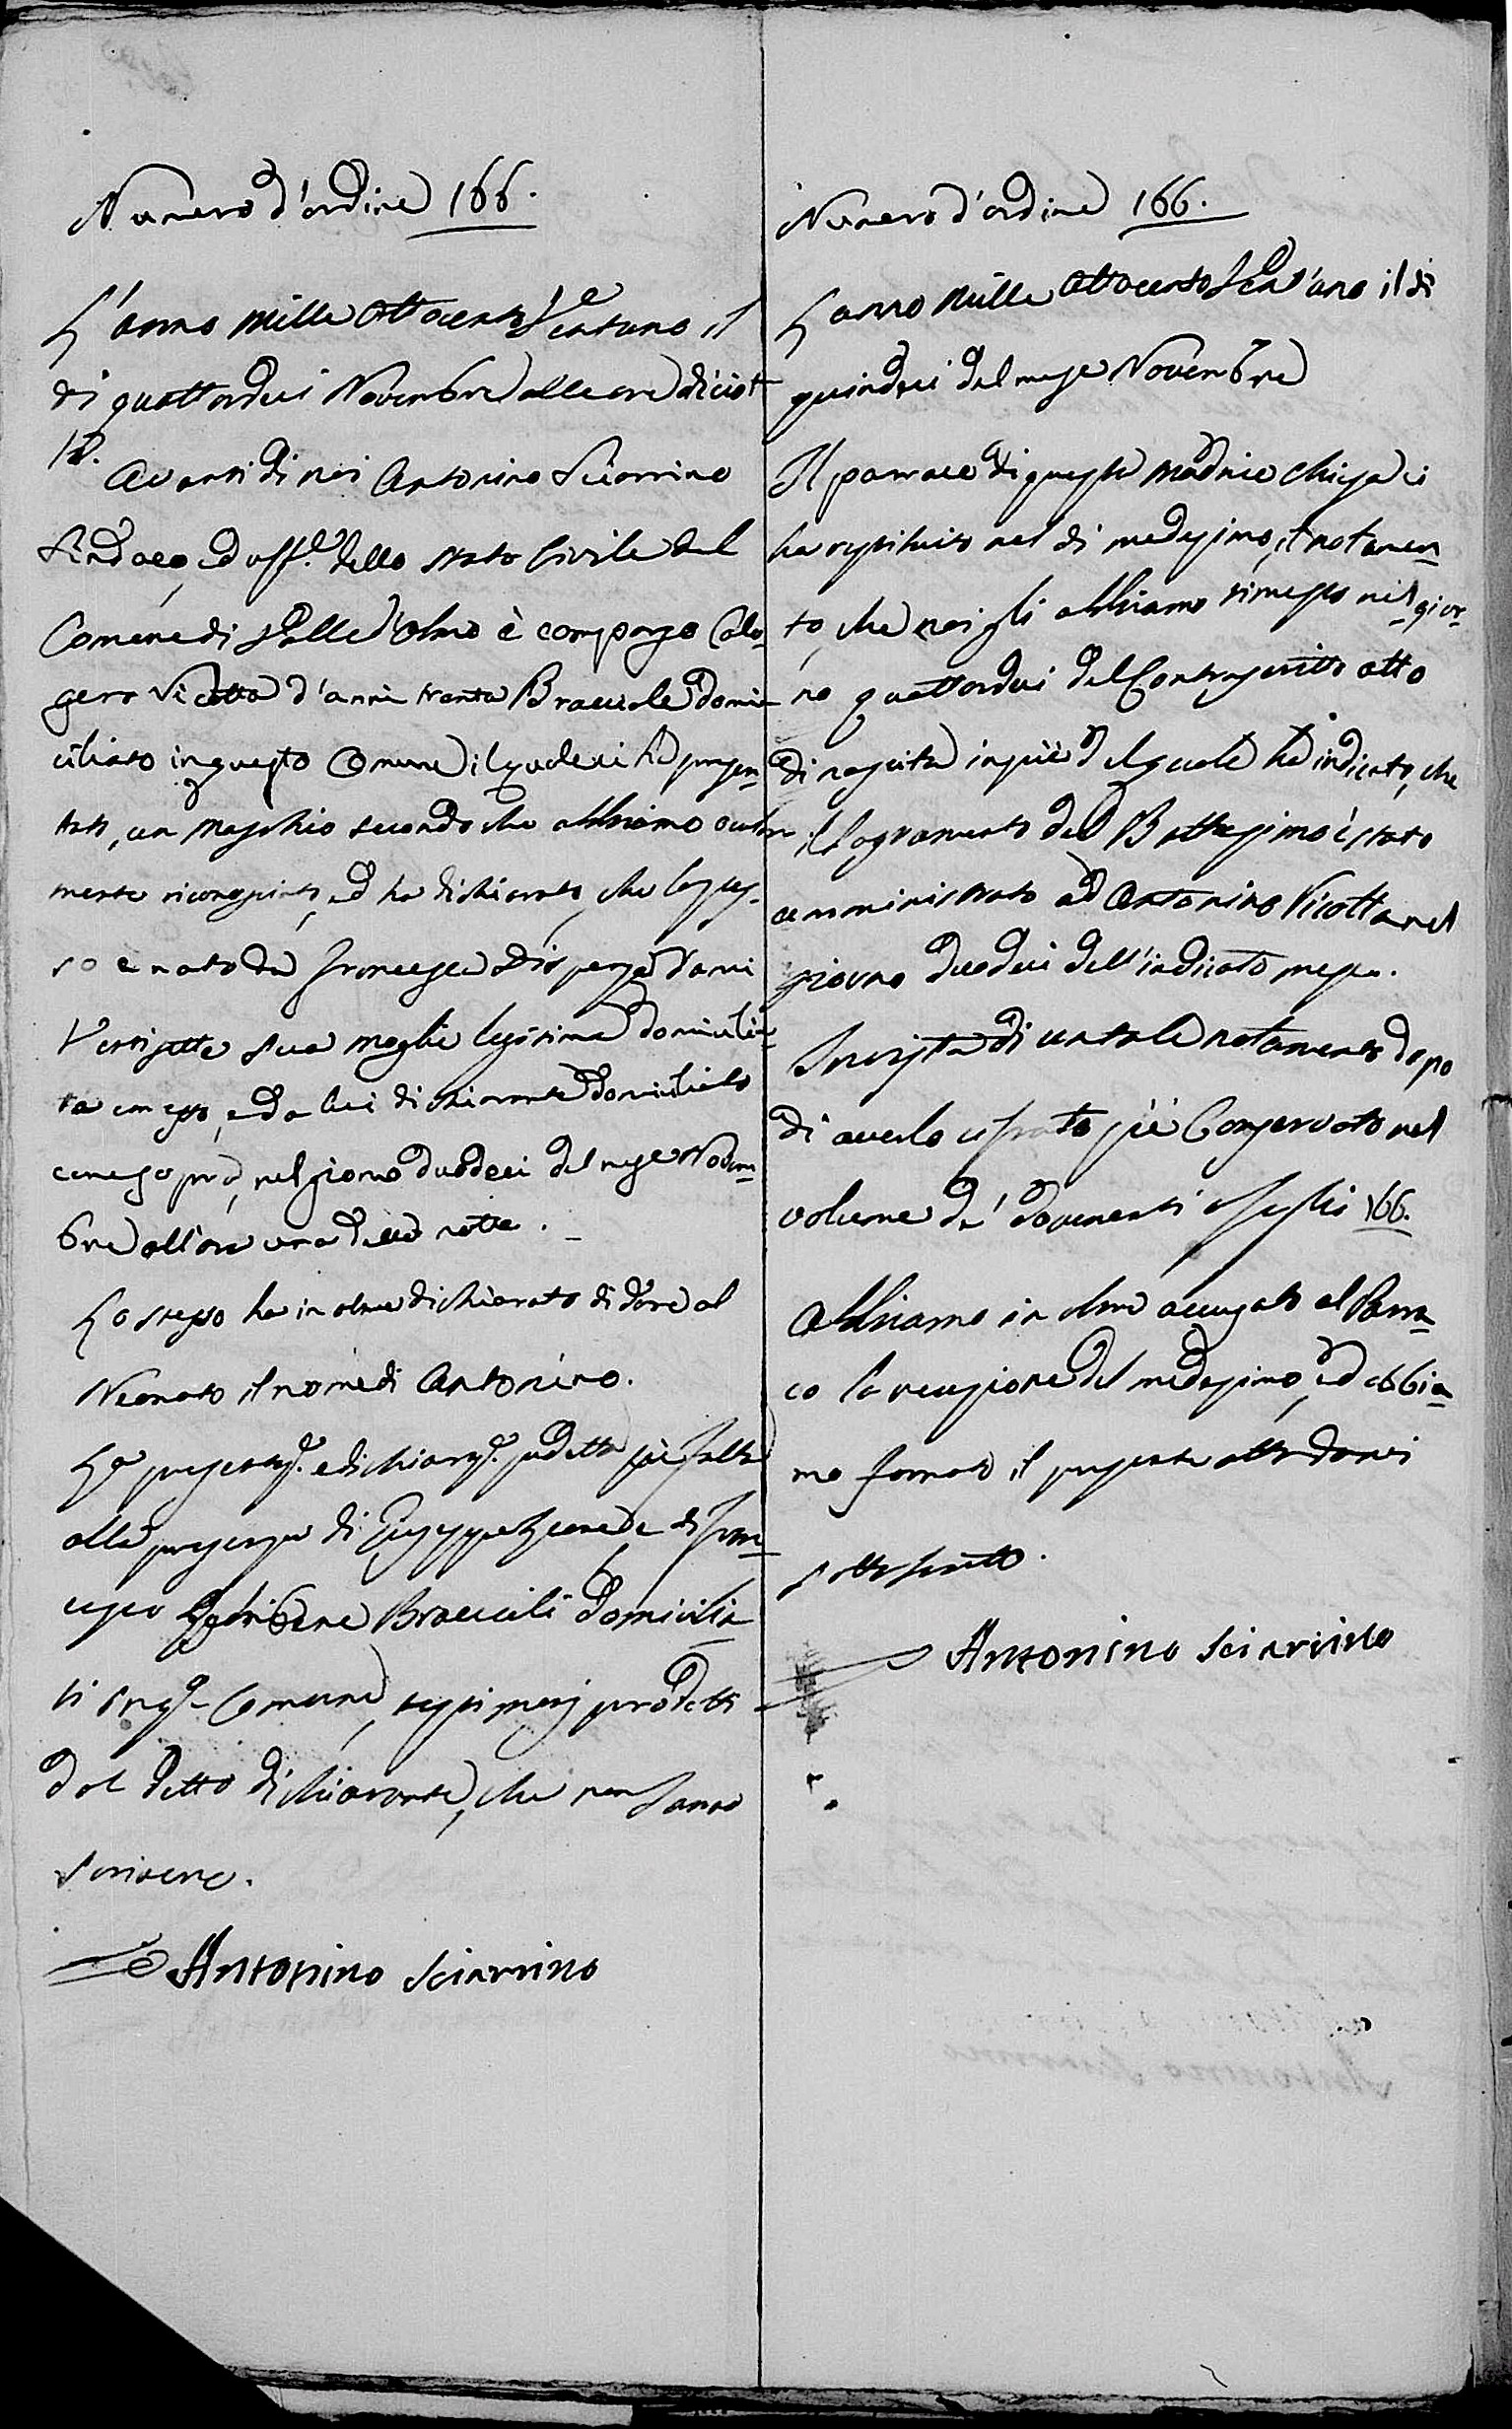 Numero d'ordine 166.
L'anno mille ottocento Sessantuno il
dì quattordeci Novembre alle ore diciot
to. Avanti di noi Antonino Sciarrino
Sindaco, ed uff.e dello stato Civile del
Comune di Valledolmo è comparso Calo-
gero Vicotta d'anni trenta Bracciale domi-
ciliato in questo Comune il quale ci ha presen-
tato, un Maschio secondo che abbiamo ocular
mente riconosciuto, ed ha dichiarato, che lo stes-
so è nato da Francesca Dispenza d'anni
Ventisette sua moglie legitima domicilia-
ta con esso, e da lui dichiarante domiciliato
come sopra, nel giorno duodeci del mese Novem-
bre all'ore una della notte.
Lo stesso ha inoltre dichiarato di dare al
Neonato il nome di Antonino.
La presentaz.e e dichiaraz.e sudetta si è fatta
alla presenza di Giuseppe e di Fran-
cesco Bracciali domicilia-
ti in q.o Comune, testimonj prodotti
dal detto dichiarante, che non sanno
scrivere.
Antonino Sciarrino
Numero d'ordine 166.
L'anno Mille Ottocento Sessant'uno il dì
quindeci del mese Novembre
Il parroco di questa Madrice Chiesa ci
ha restituito nel dì medesimo, il notamen-
to, che noi gli abbiamo rimesso nel gior-
no quattordeci del Controscritto atto
di nascita in piè del quale ha indicato, che
il Sagramento del Battesimo è stato
amministrato ad Antonino Vicotta nel
giorno duodeci dell'indicato mese.
In vista di un tale notamento dopo
di averlo cifrato si è Conservato nel
volume de' documenti a foglio 166.
Abbiamo in oltre accusato al Parro-
co la recezione del medesimo, ed abbia-
mo formato il presente atto da noi
sottoscritto.
Antonino Sciarrino